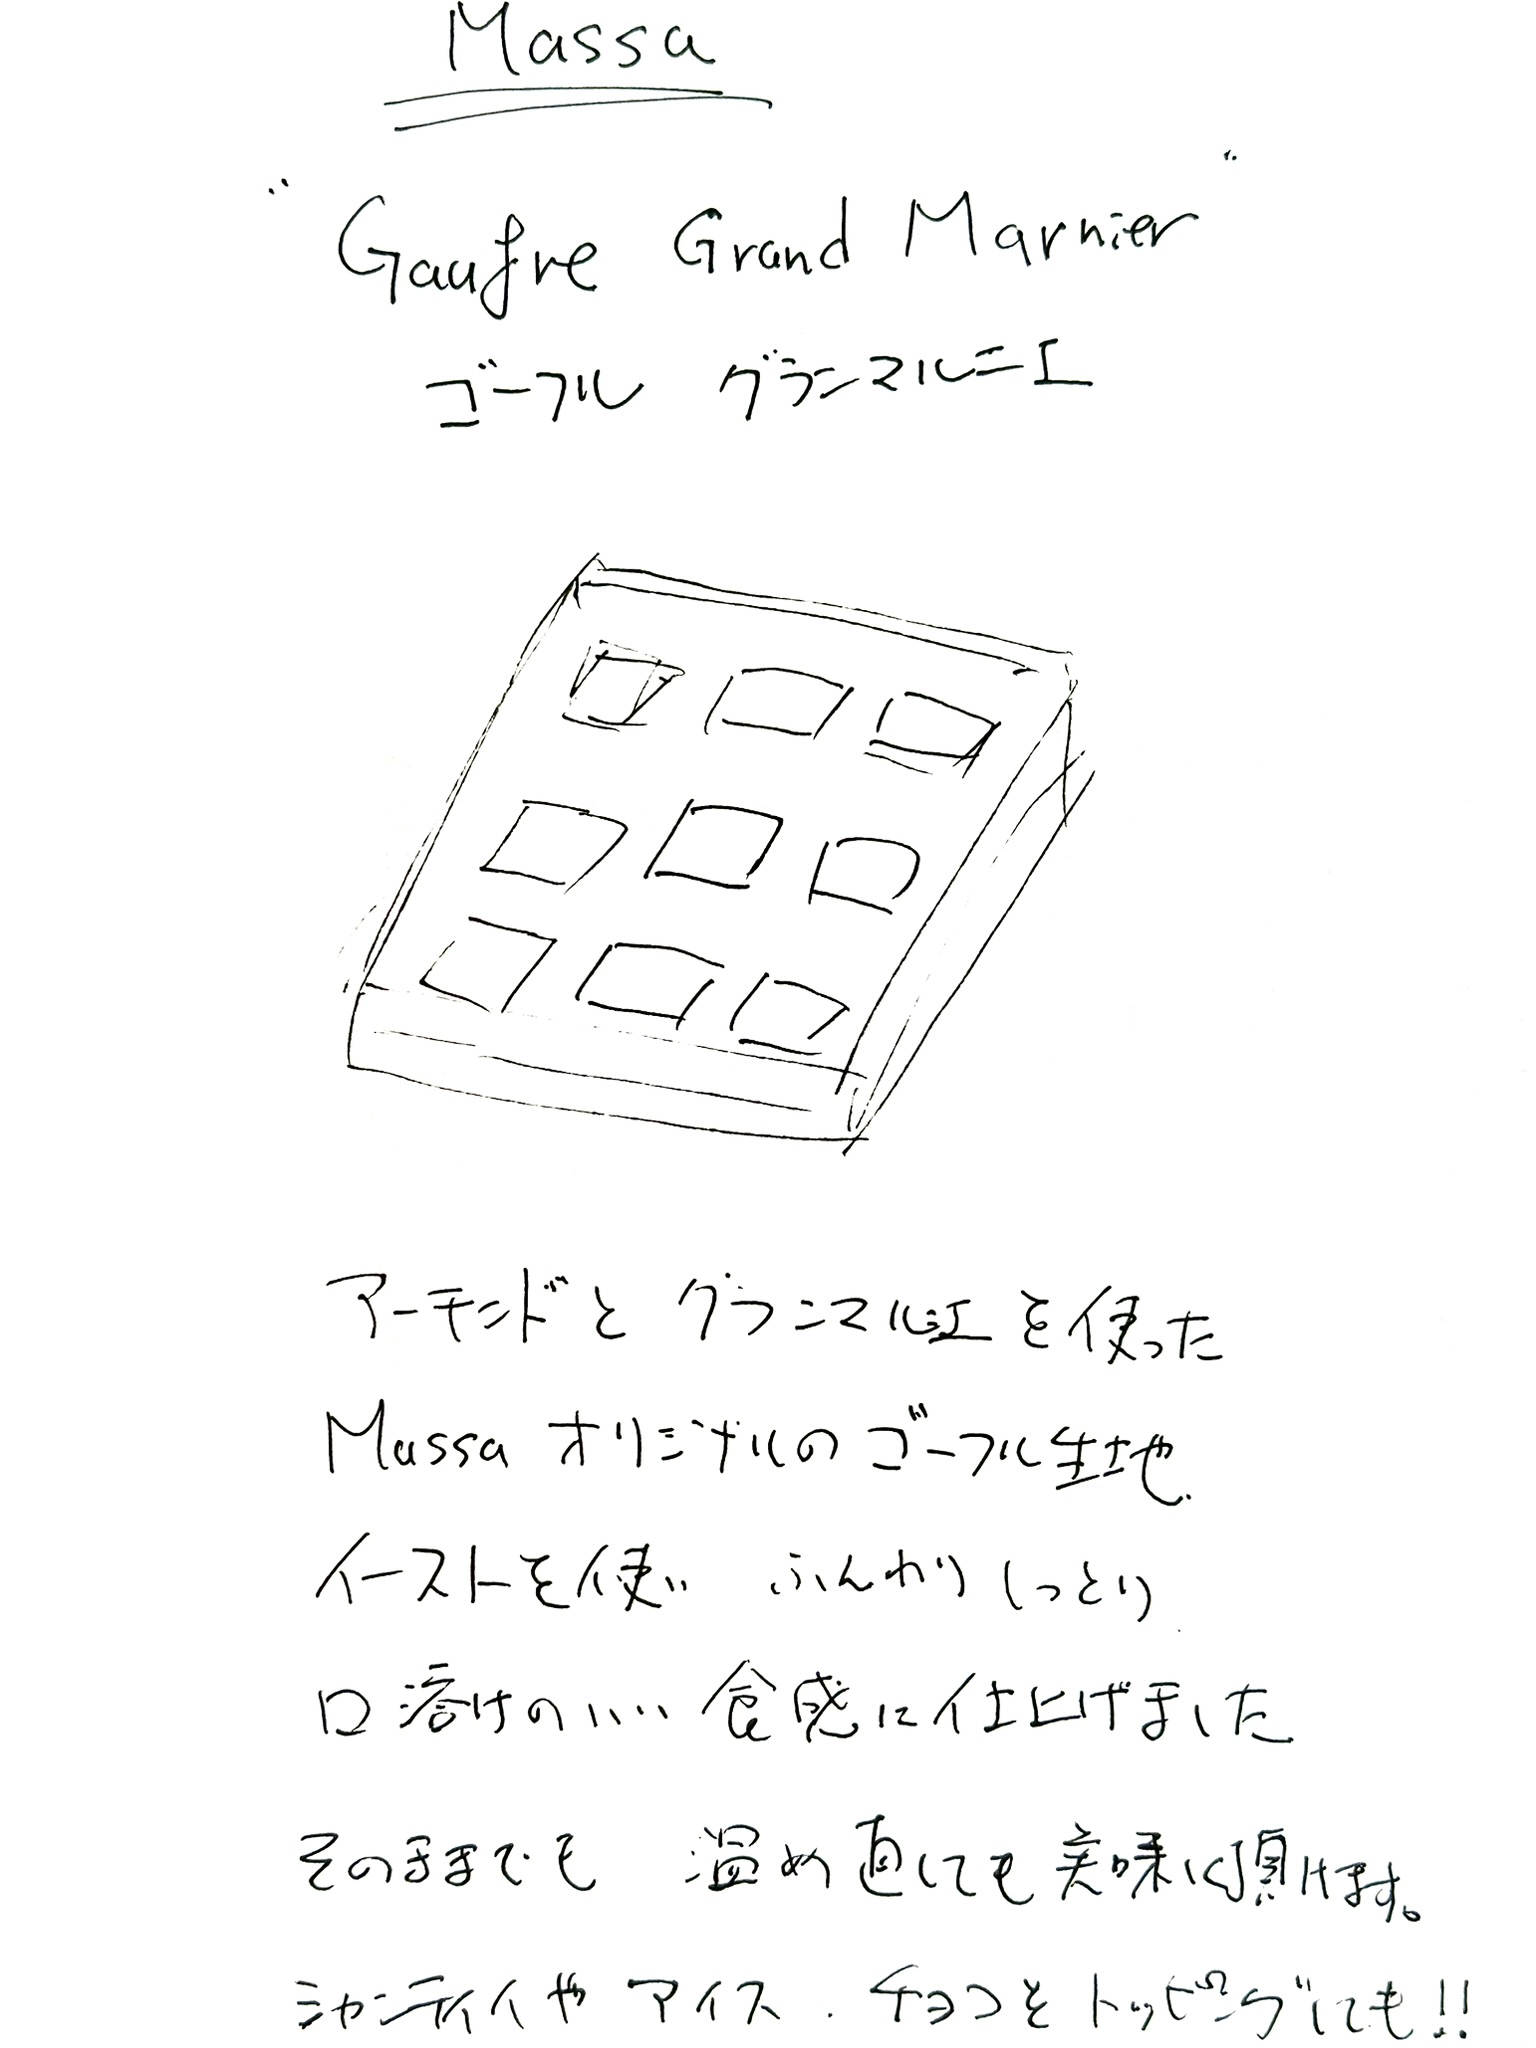 Massa
"Gaufre Grand Marnier"
ゴーフル グランマルニエ
アーモンドと グランマルニエを使った
Massa オリジナルの ゴーフル生地
イーストを使い ふんわりしっとり
口溶けのいい食感に仕上げました
そのままでも 温め直しても美味しく頂けます。
シャンティイや アイス・チョコをトッピングしても!!